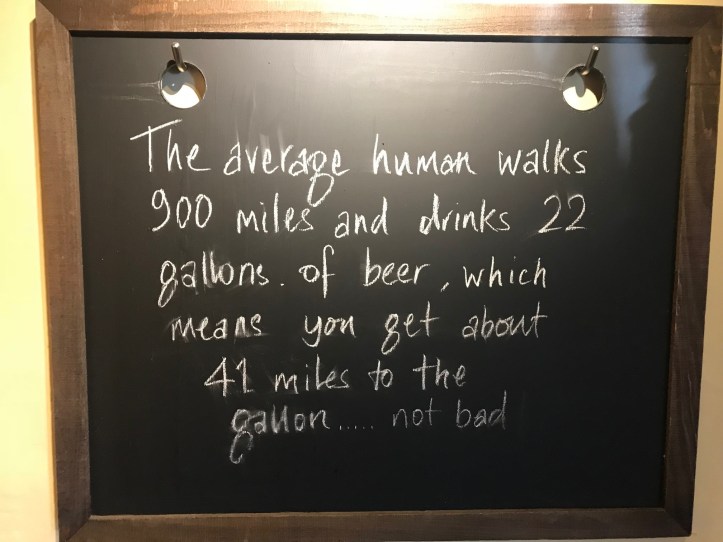 The average human walks
900 miles and drinks 22
gallons. of beer, which
means you get about
41 miles to the
gallon..... not bad